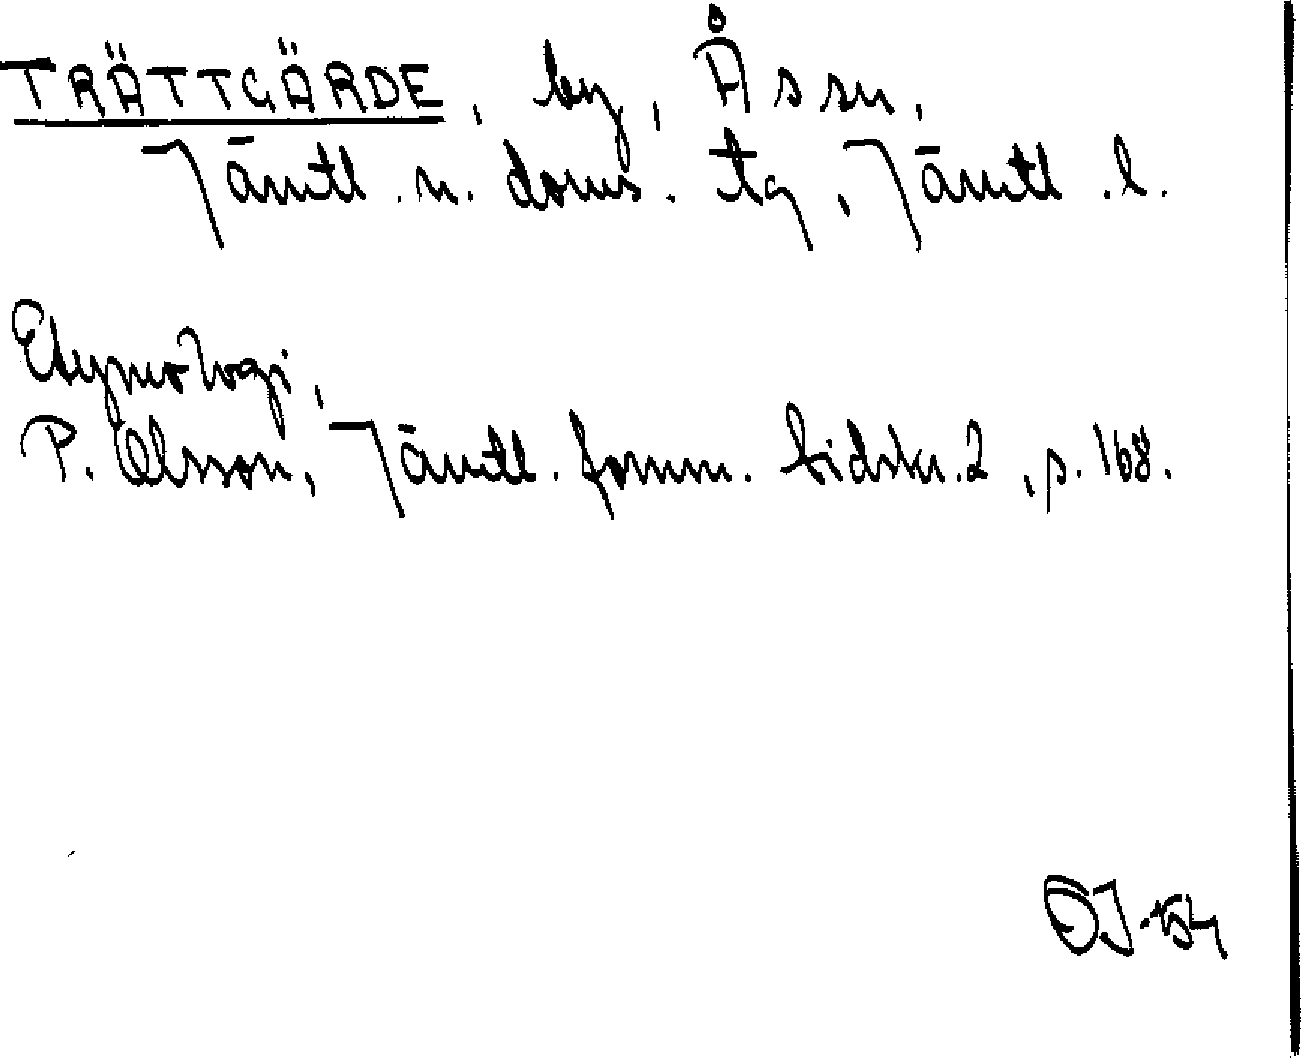 TRÄTTGÄRDE, by, Ås sn,
Jämtl. n. doms. tg, Jämtl. l.
Etymologi,
P. Olsson, Jämtl. fornm. tidskr. 2, s. 168.
ÖJ-54